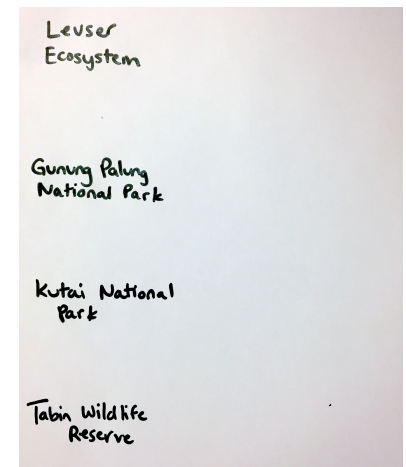 Leuser
Ecosystem
Gunung Palung
National Park
Kutai National
Park
Tabin Wildlife
Reserve